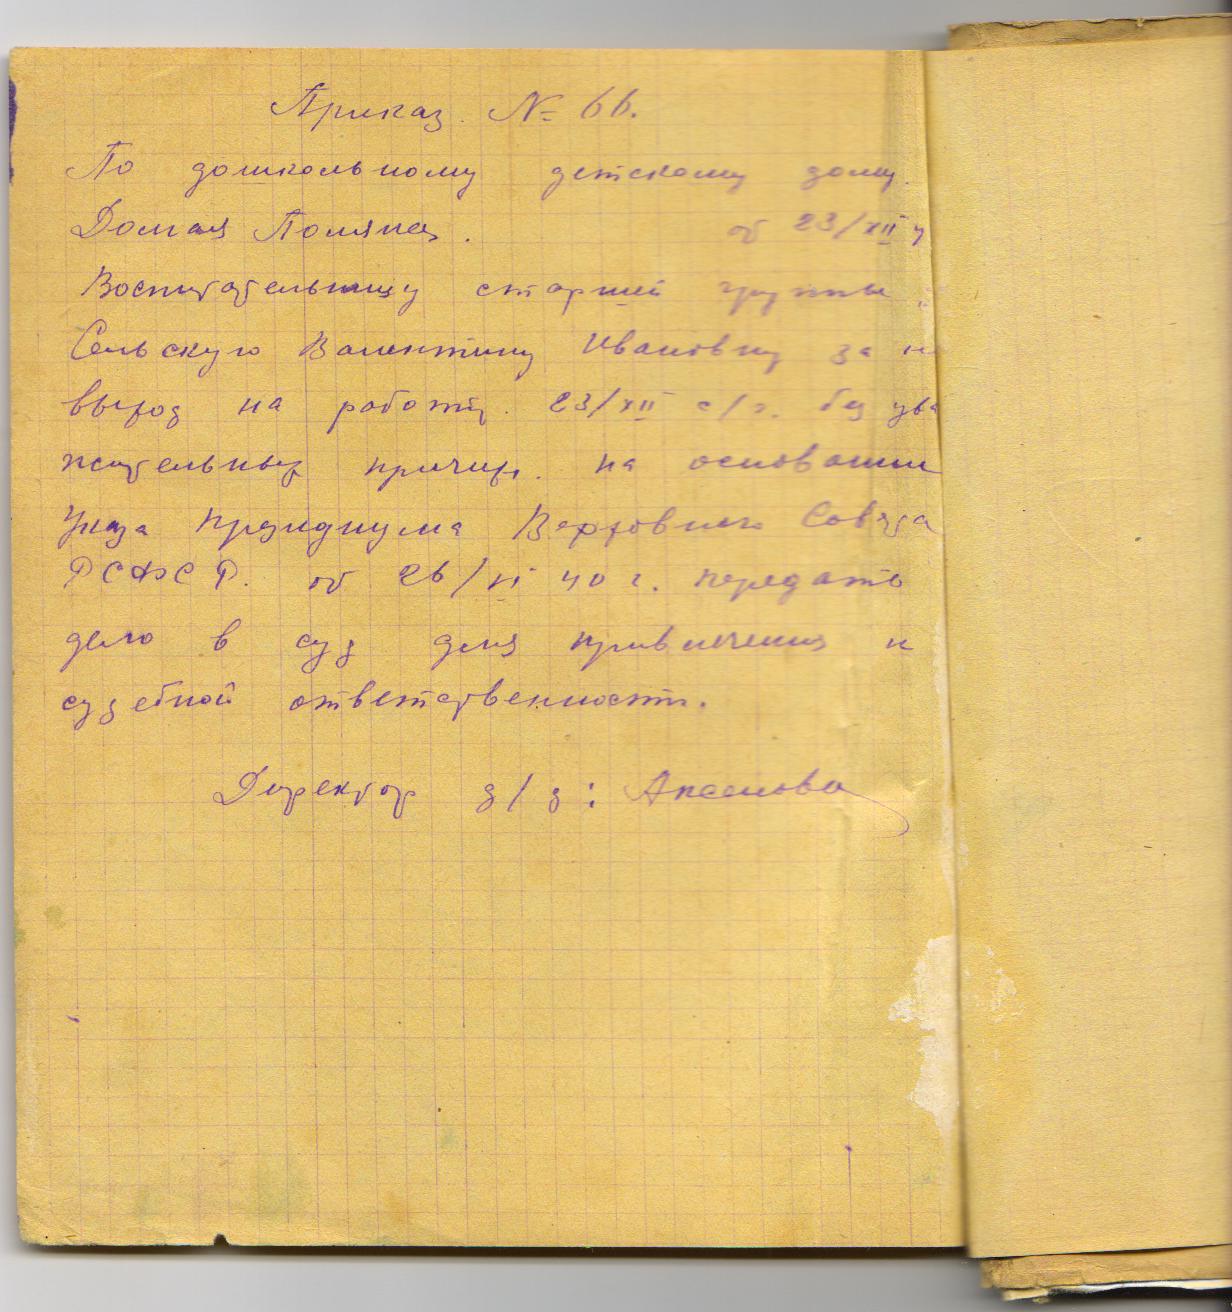 Приказ № 66.
По дошкольному детскому дому
Долгая Поляна. от 23/XII
Воспитательницу старшей группы
Сельскую Валентину Ивановну за не
выход на работу 23/XII с/г. без ува
жительных причин. на основании
Указа Президиума Верховного Совета
РСФСР. от 26/VI 40 г. передать
дело в суд для привлечения к
судебной ответственности.
Директор д/д: Аксенова